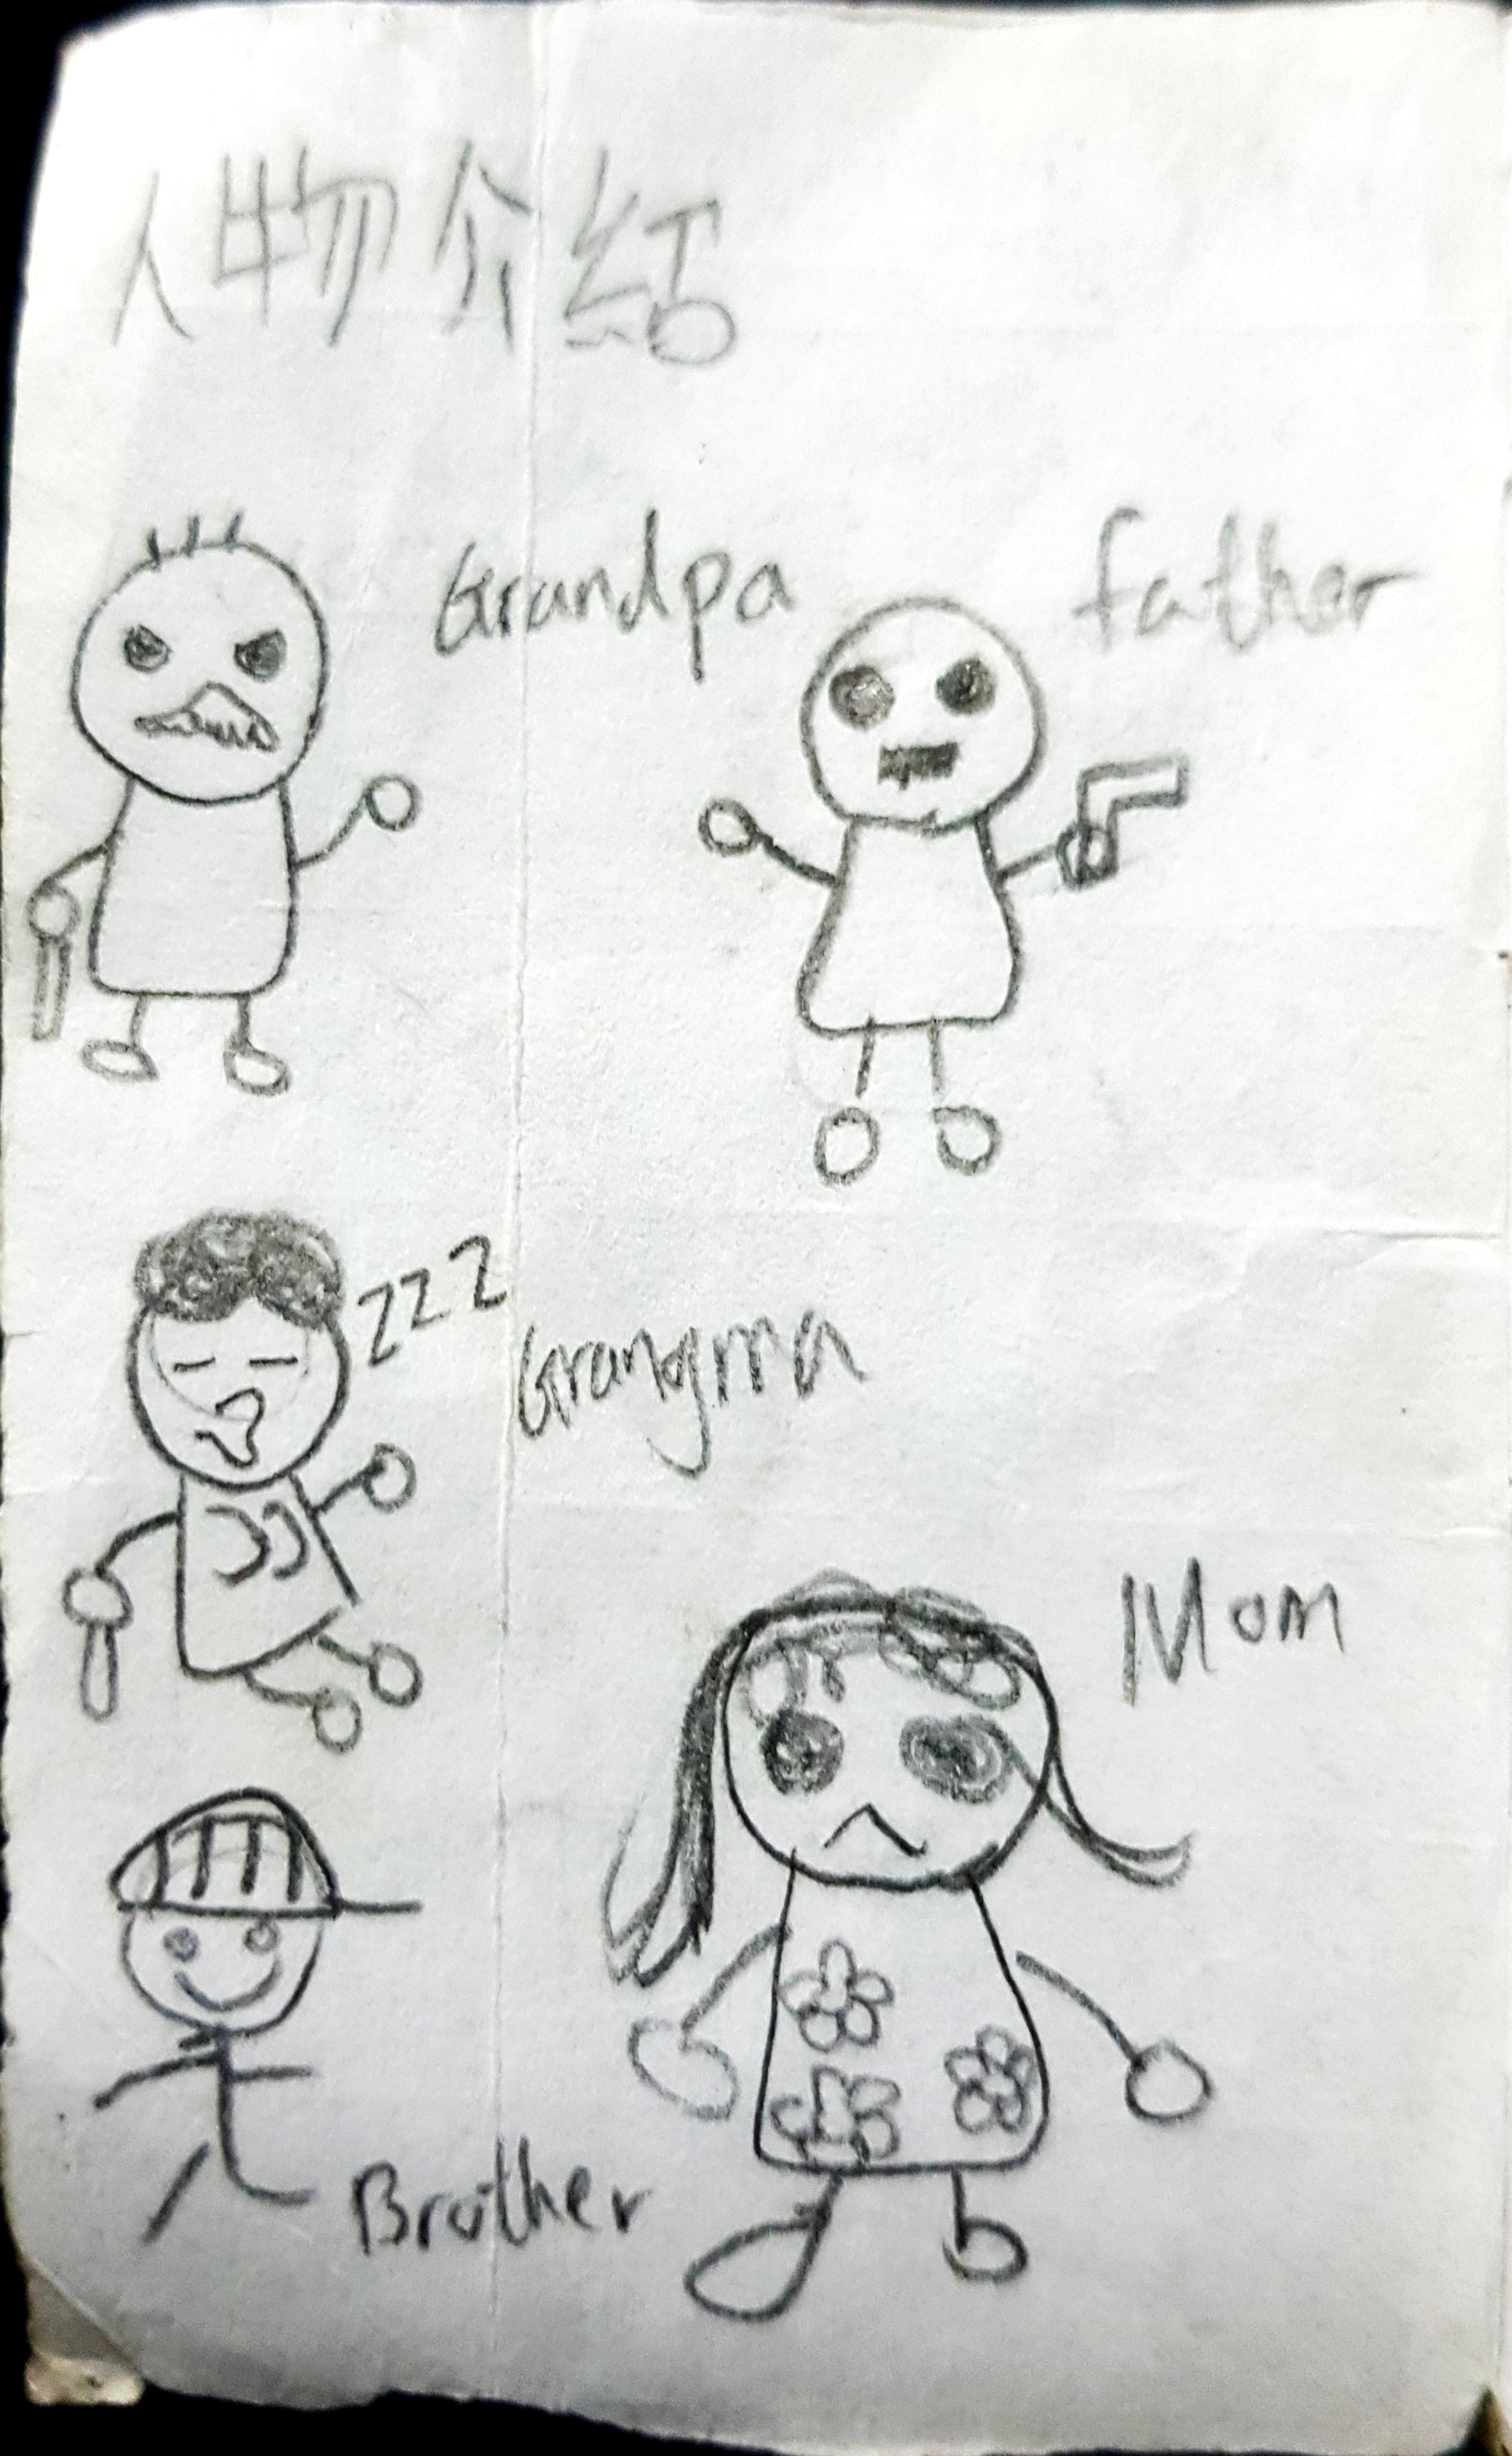 人物介绍
Grandpa
father
zzz
Grangma
Mom
Brother